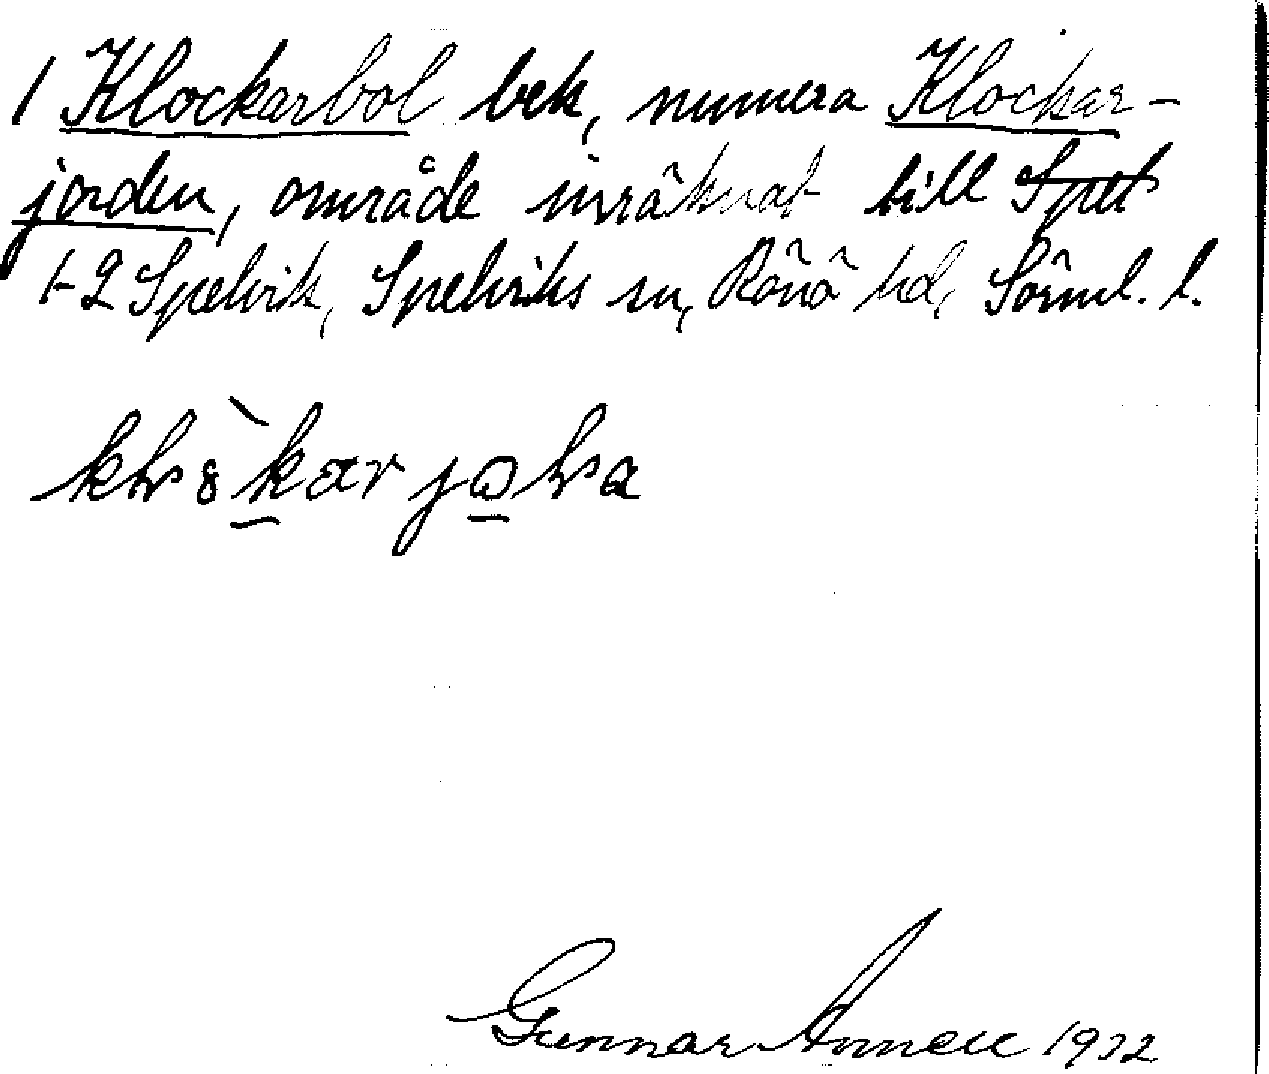 1 Klockarbol bek, numera Klockar-
jorden, område inräknat till Spel
1-2 Spelvik, Spelviks sn, Rönö hd, Sörml. l.
Gunnar Annell 1932